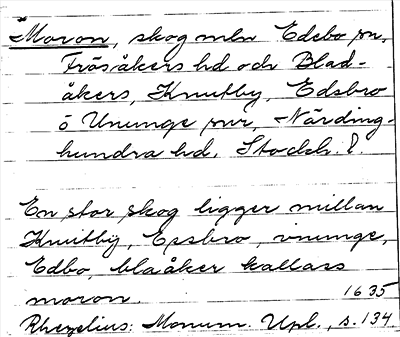 Moron, skog mln Edebo sn,
Frösåkers hd och Blad-
åkers, Knutby, Edsbro
o Ununge snr, Närding-
hundra hd, Stockh. l.
En stor skog ligger millan
Knutby, Essbro, vnunge,
Edbo, blaåker kallass
moron. 1635
Rhezelius: Monum. Upl., s. 134.